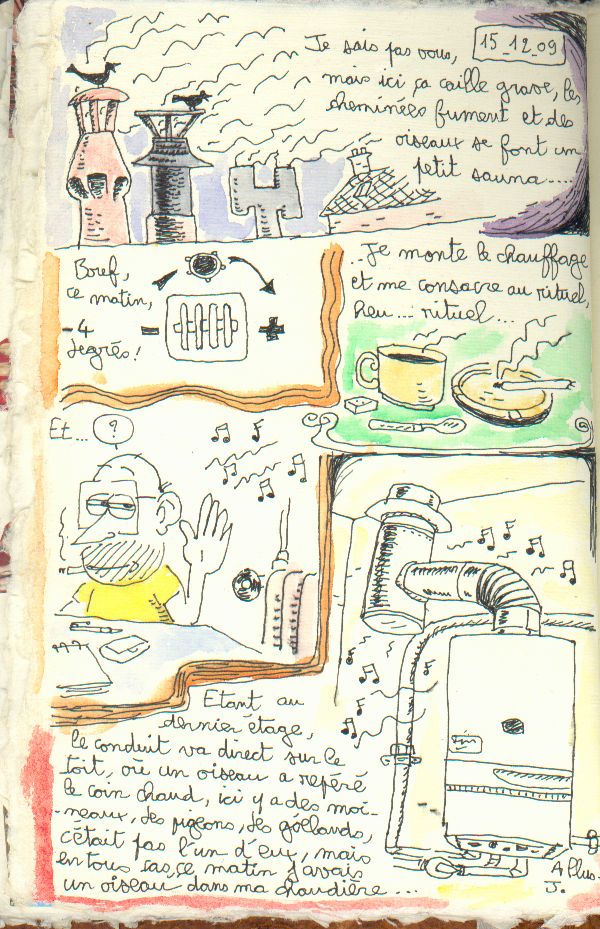 15_12_09
Je sais pas vous,
mais ici ça caille grave, les
cheminées fument et des
oiseaux se font un
petit sauna....
Bref,
ce matin,
-4
degrés!
- +
...Je monte le chauffage
et me consacre au rituel,
heu... rituel...
Et... ?
Etant au
dernier étage,
le conduit va direct sur le
toit, où un oiseau a repéré
le coin chaud, ici y a des moi-
neaux, des pigeons, des goélands,
c'était pas l'un d'eux, mais
en tous cas, ce matin j'avais
un oiseau dans ma chaudière...
A Plus.
J.